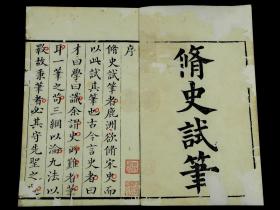 脩史試筆
序
脩史試筆者鹿洲欲脩宋史而
以此試其筆也古今言史者曰
才曰學曰識余謂史難者筆
耳一筆之苟三綱以淪九法以
斁故秉筆者必其守先聖之